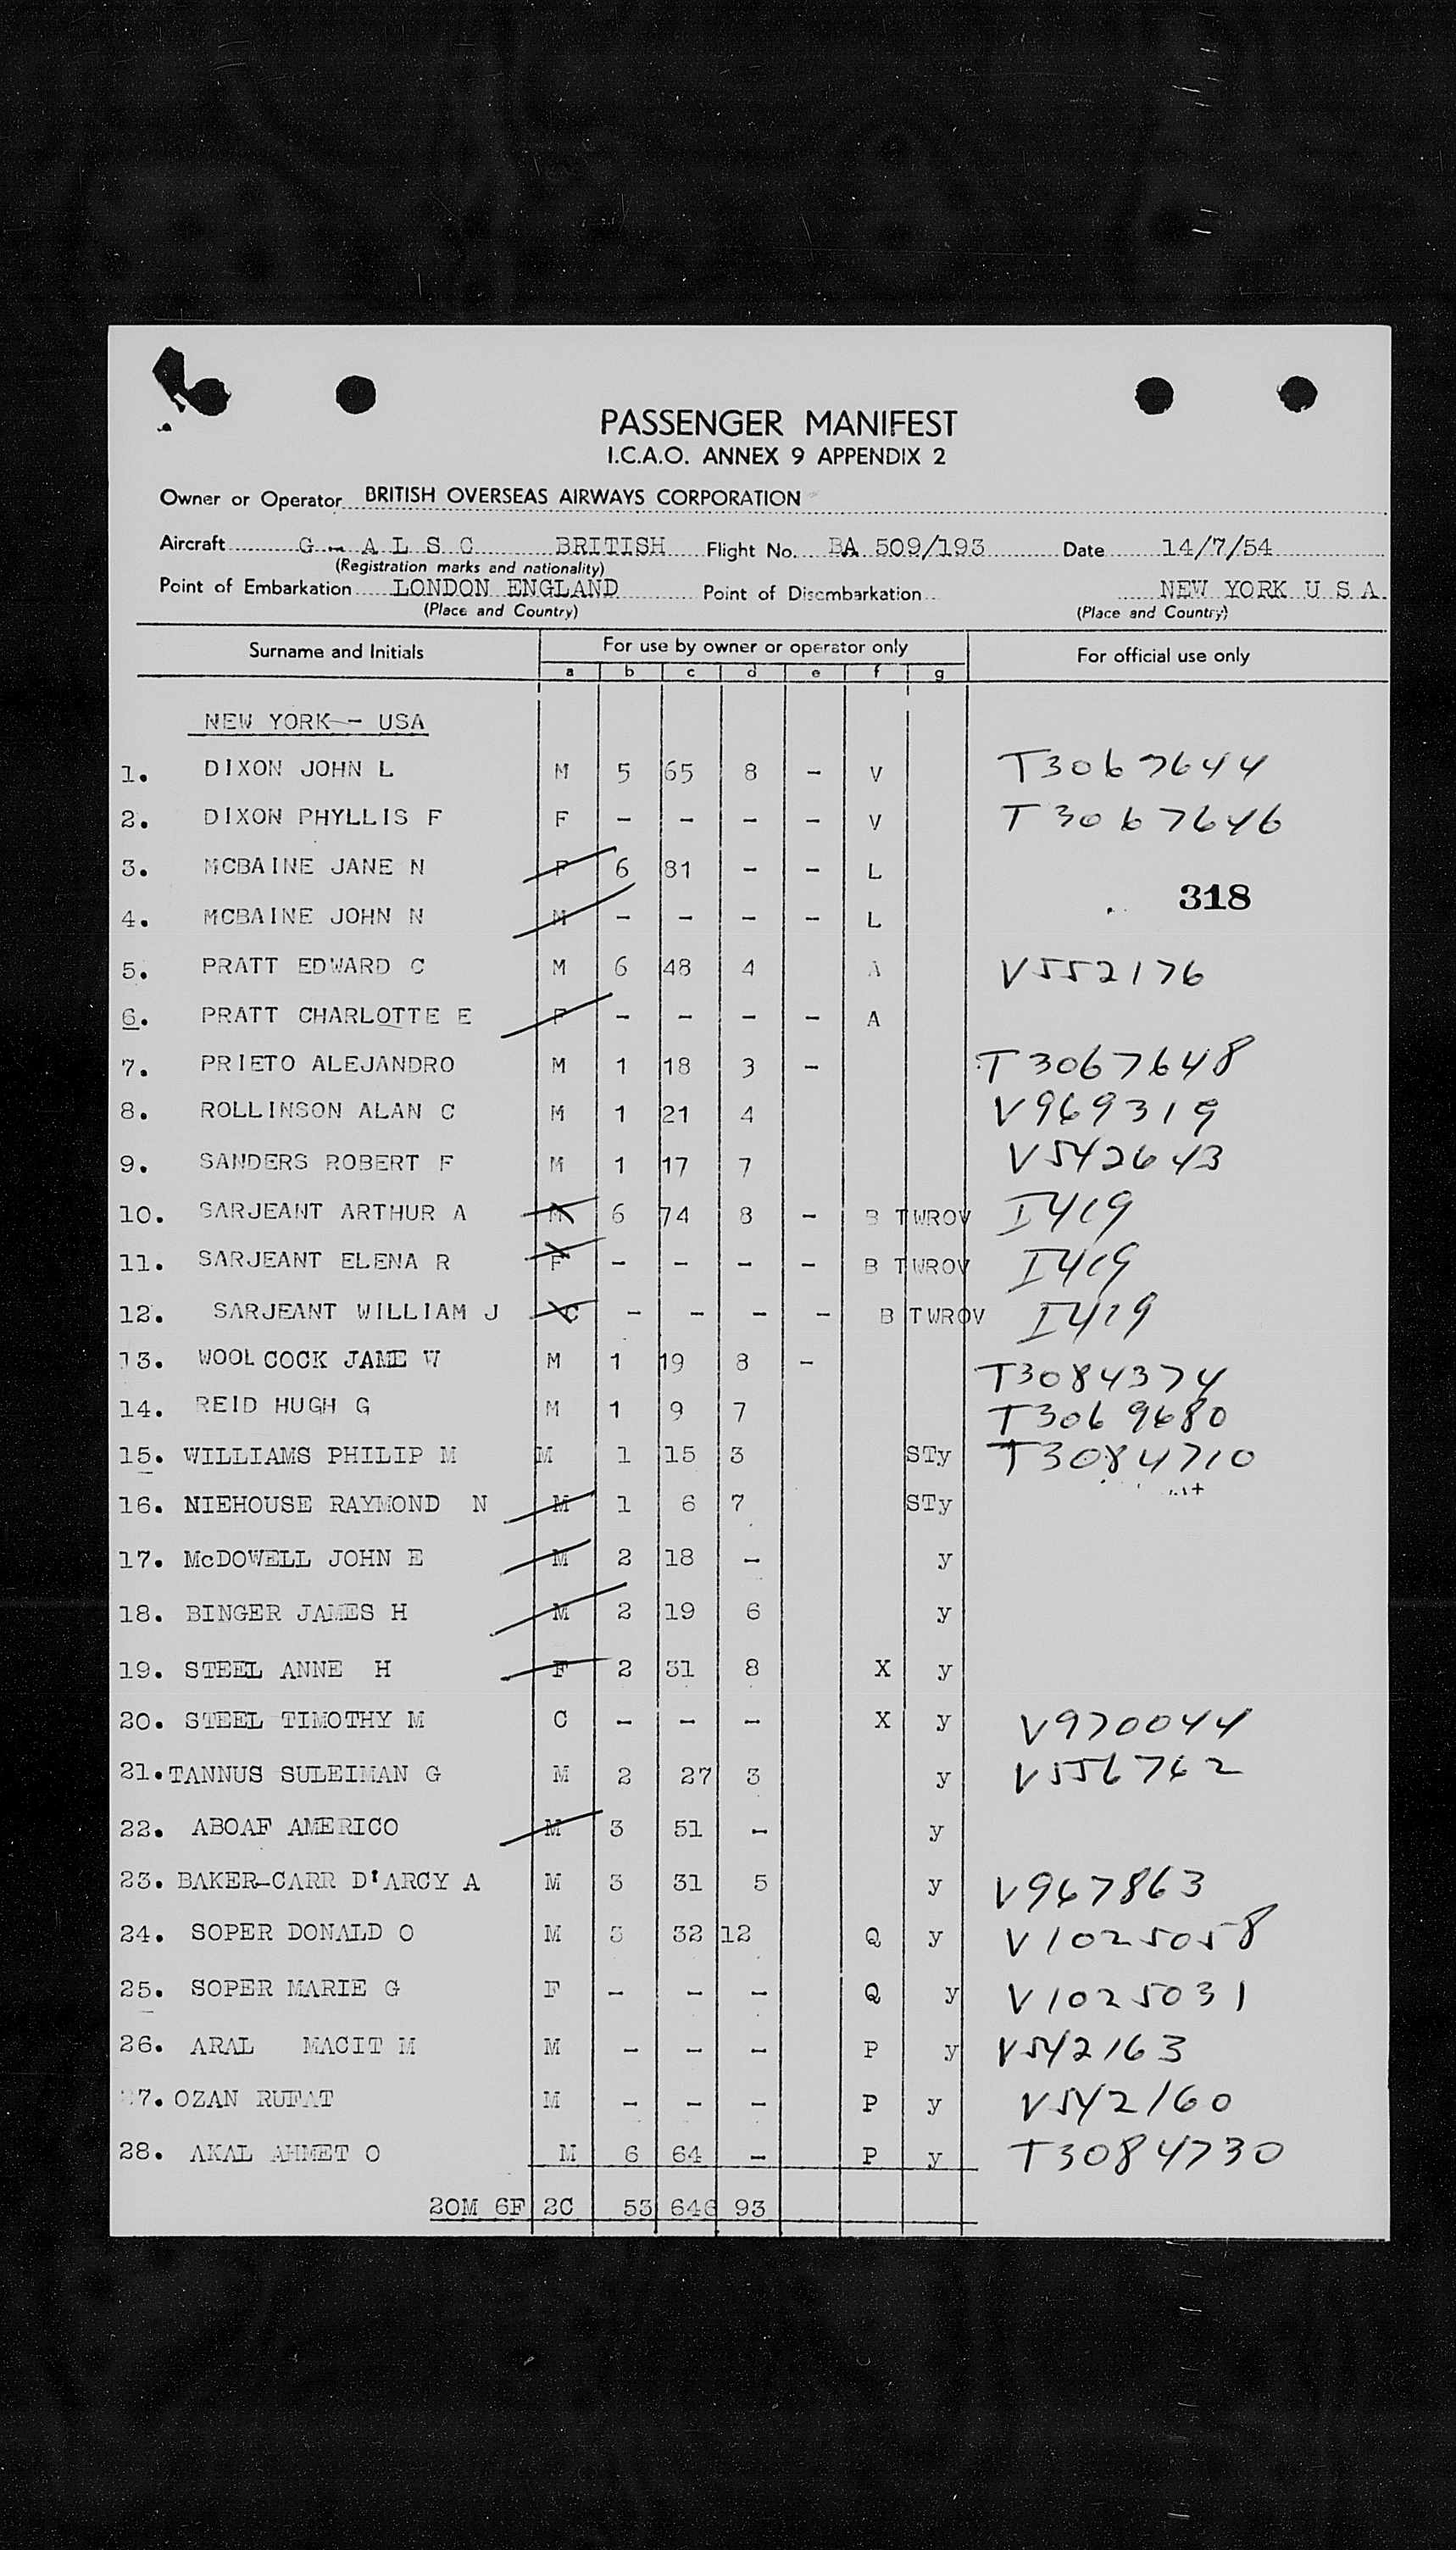 PASSENGER MANIFEST
I.C.A.O. ANNEX 9 APPENDIX 2
Owner or Operator BRITISH OVERSEAS AIRWAYS CORPORATION
Aircraft G - A L S C BRITISH Flight No. BA 509/193 Date 14/7/54
(Registration marks and nationality)
Point of Embarkation LONDON ENGLAND Point of Disembarkation NEW YORK U S A
(Place and Country) (Place and Country)
Surname and Initials For use by owner or operator only For official use only
a b c d e f g
NEW YORK - USA
1. DIXON JOHN L M 5 65 8 - V T3067644
2. DIXON PHYLLIS F F - - - - V T3067646
3. MCBAINE JANE N F 6 81 - - L
318
4. MCBAINE JOHN N M - - - - L
5. PRATT EDWARD C M 6 48 4 A V552176
6. PRATT CHARLOTTE E F - - - - A
7. PRIETO ALEJANDRO M 1 18 3 - T3067648
8. ROLLINSON ALAN C M 1 21 4 V969319
9. SANDERS ROBERT F M 1 17 7 V542643
10. SARJEANT ARTHUR A M 6 74 8 - B TWROV I419
11. SARJEANT ELENA R F - - - - B TWROV I419
12. SARJEANT WILLIAM J C - - - - B TWROV I419
13. WOOLCOCK JAME W M 1 19 8 - T3084374
14. REID HUGH G M 1 9 7 T3069680
15. WILLIAMS PHILIP M M 1 15 3 STy T3084710
16. NIEHOUSE RAYMOND N M 1 6 7 STy
17. McDOWELL JOHN E M 2 18 - y
18. BINGER JAMES H M 2 19 6 y
19. STEEL ANNE H F 2 31 8 X y
20. STEEL TIMOTHY M C - - - X y V970044
21. TANNUS SULEIMAN G M 2 27 3 y V556762
22. ABOAF AMERICO M 3 51 - y
23. BAKER-CARR D'ARCY A M 3 31 5 y V967863
24. SOPER DONALD O M 3 32 12 Q y V1025058
25. SOPER MARIE G F - - - Q y V1025031
26. ARAL MACIT M M - - - P y V542163
27. OZAN RUFAT M - - - P y V542160
28. AKAL AHMET O M 6 64 - P y T3084730
20M 6F 2C 53 646 93